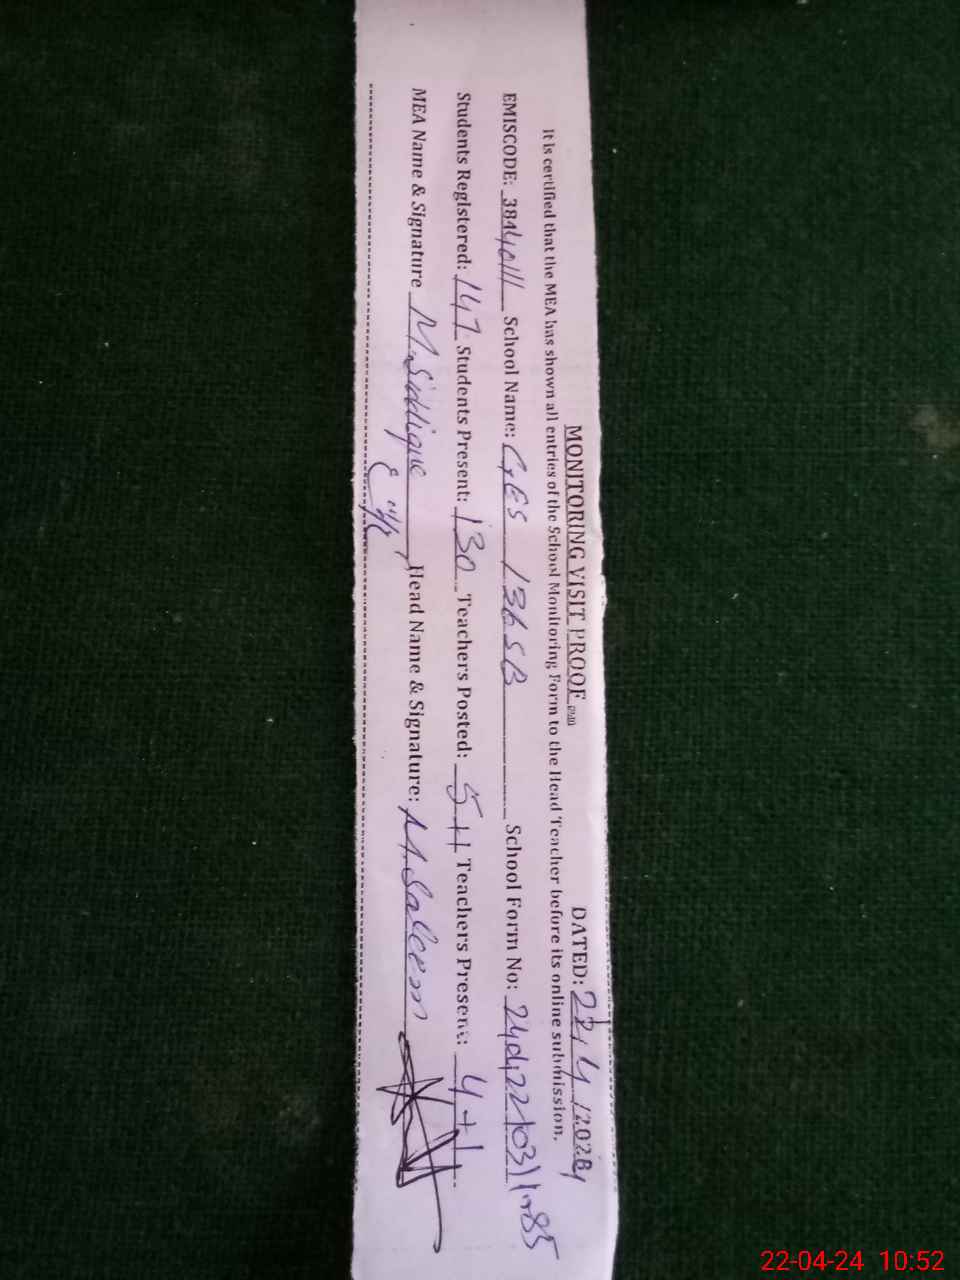 MONITORING VISIT PROOF DATED: 22,4/2024
It is certified that the MEA has shown all entries of the School Monitoring Form to the Head Teacher before its online submission.
EMISCODE: 38440111 School Name: GES 136SB School Form No:
Students Registered: 147 Students Present: 130 Teachers Posted: 5+1 Teachers Present: 4+1
MEA Name & Signature M.Siddique Head Name & Signature: M.Saleem
22-04-24 10:52